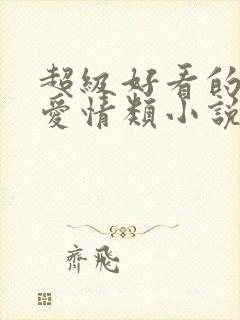 超級好看的
愛情類小說
齊飛